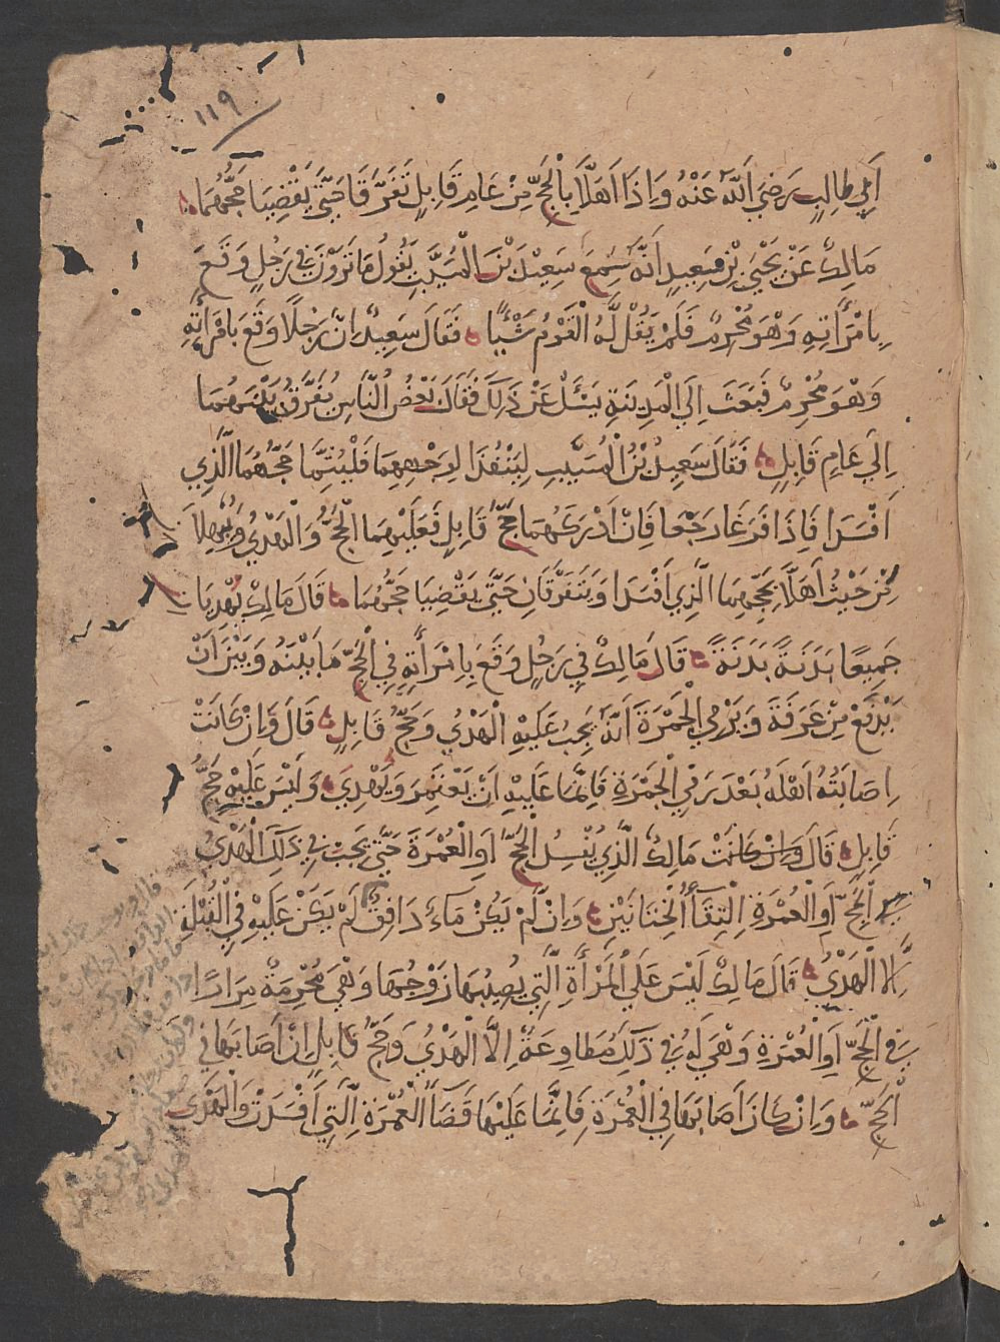 ١١٩
اَبِي طَالِبٍ رَضِيَ اَللَّهُ عَنْهُ وَاِذَا اَهَلَّا بِالْحَجِّ مِنْ عَامِ قَابِلٍ تَفَرَّقَا حَتَّى يَقْضِيَا حَجَّهُمَا
مَالِكٌ عَنْ يَحْيَى بْنِ سَعِيدٍ اَنَّهُ سَمِعَ سَعِيدَ بْنَ الْمُسَيَّبِ يَقُولُ مَا تَرَوْنَ فِي رَجُلٍ وَقَعَ
بِامْرَأَتِهِ وَهْوَ مُحْرِمٌ فَلَمْ يَقُلْ لَّهُ الْقَوْمُ شَيْئًا فَقَالَ سَعِيدٌ اِنَّ رَجُلًا وَقَعَ بِامْرَأَتِهِ
وَهْوَ مُحْرِمٌ فَبَعَثَ اِلَى الْمَدِينَةِ يَسْئَلُ عَنْ ذَلِكَ فَقَالَ بَعْضُ النَّاسِ يُفَرَّقُ بَيْنَهُمَا
اِلَى عَامِ قَابِلٍ فَقَالَ سَعِيدُ بْنُ الْمُسَيِّبِ لِيَنْفُذَا لِوَجْهِهِمَا فَلْيُتِمَّا حَجَّهُمَا الَّذِي
اَفْسَدَا فَاِذَا فَرَغَا رَجَعَا فَاِنْ اَدْرَكَهُمَا حَجٌّ قَابِلٌ فَعَلَيْهِمَا الْحَجُّ وَالْهَدْيُ وَيُهِلَّانِ
مِنْ حَيْثُ اَهَلَّا بِحَجِّهِمَا الَّذِي اَفْسَدَا وَيَتَفَرَّقَانِ حَتَّى يَقْضِيَا حَجَّهُمَا قَالَ مَالِكٌ يُهْدِيَانِ
جَمِيعًا بَدَنَةً بَدَنَةً قَالَ مَالِكٌ فِي رَجُلٍ وَقَعَ بِامْرَأَتِهِ فِي الْحَجِّ مَا بَيْنَهُ وَبَيْنَ اَنْ
يَدْفَعَ مِنْ عَرَفَةَ وَيَرْمِيَ الْجَمْرَةَ اَنَّهُ يَجِبُ عَلَيْهِ الْهَدْيُ وَحَجُّ قَابِلٍ قَالَ وَاِنْ كَانَتْ
اِصَابَتُهُ اَهْلَهُ بَعْدَ رَمْيِ الْجَمْرَةِ فَاِنَّمَا عَلَيْهِ اَنْ يَعْتَمِرَ وَيُهْدِيَ وَلَيْسَ عَلَيْهِ حَجُّ
قَابِلٍ قَالَ مَالِكٌ الَّذِي يُفْسِدُ الْحَجَّ اَوِ الْعُمْرَةَ حَتَّى يَجِبَ فِي ذَلِكَ الْهَدْيُ
فِي الْحَجِّ اَوِ الْعُمْرَةِ اِلْتِقَاءُ الْخِتَانَيْنِ وَاِنْ لَّمْ يَكُنْ مَاءٌ دَافِقٌ لَمْ يَكُنْ عَلَيْهِ فِي الْقُبْلَةِ
اِلَّا الْهَدْيُ قَالَ مَالِكٌ لَيْسَ عَلَى الْمَرْأَةِ الَّتِي يُصِيبُهَا زَوْجُهَا وَهْيَ مُحْرِمَةٌ مِرَارًا
فِي الْحَجِّ اَوِ الْعُمْرَةِ وَهْيَ لَهُ فِي ذَلِكَ مُطَاوِعَةٌ اِلَّا الْهَدْيُ وَحَجُّ قَابِلٍ اِنْ اَصَابَهَا فِي
الْحَجِّ وَاِنْ كَانَ اَصَابَهَا فِي الْعُمْرَةِ فَاِنَّمَا عَلَيْهَا قَضَاءُ الْعُمْرَةِ الَّتِي اَفْسَدَتْ وَالْهَدْيُ